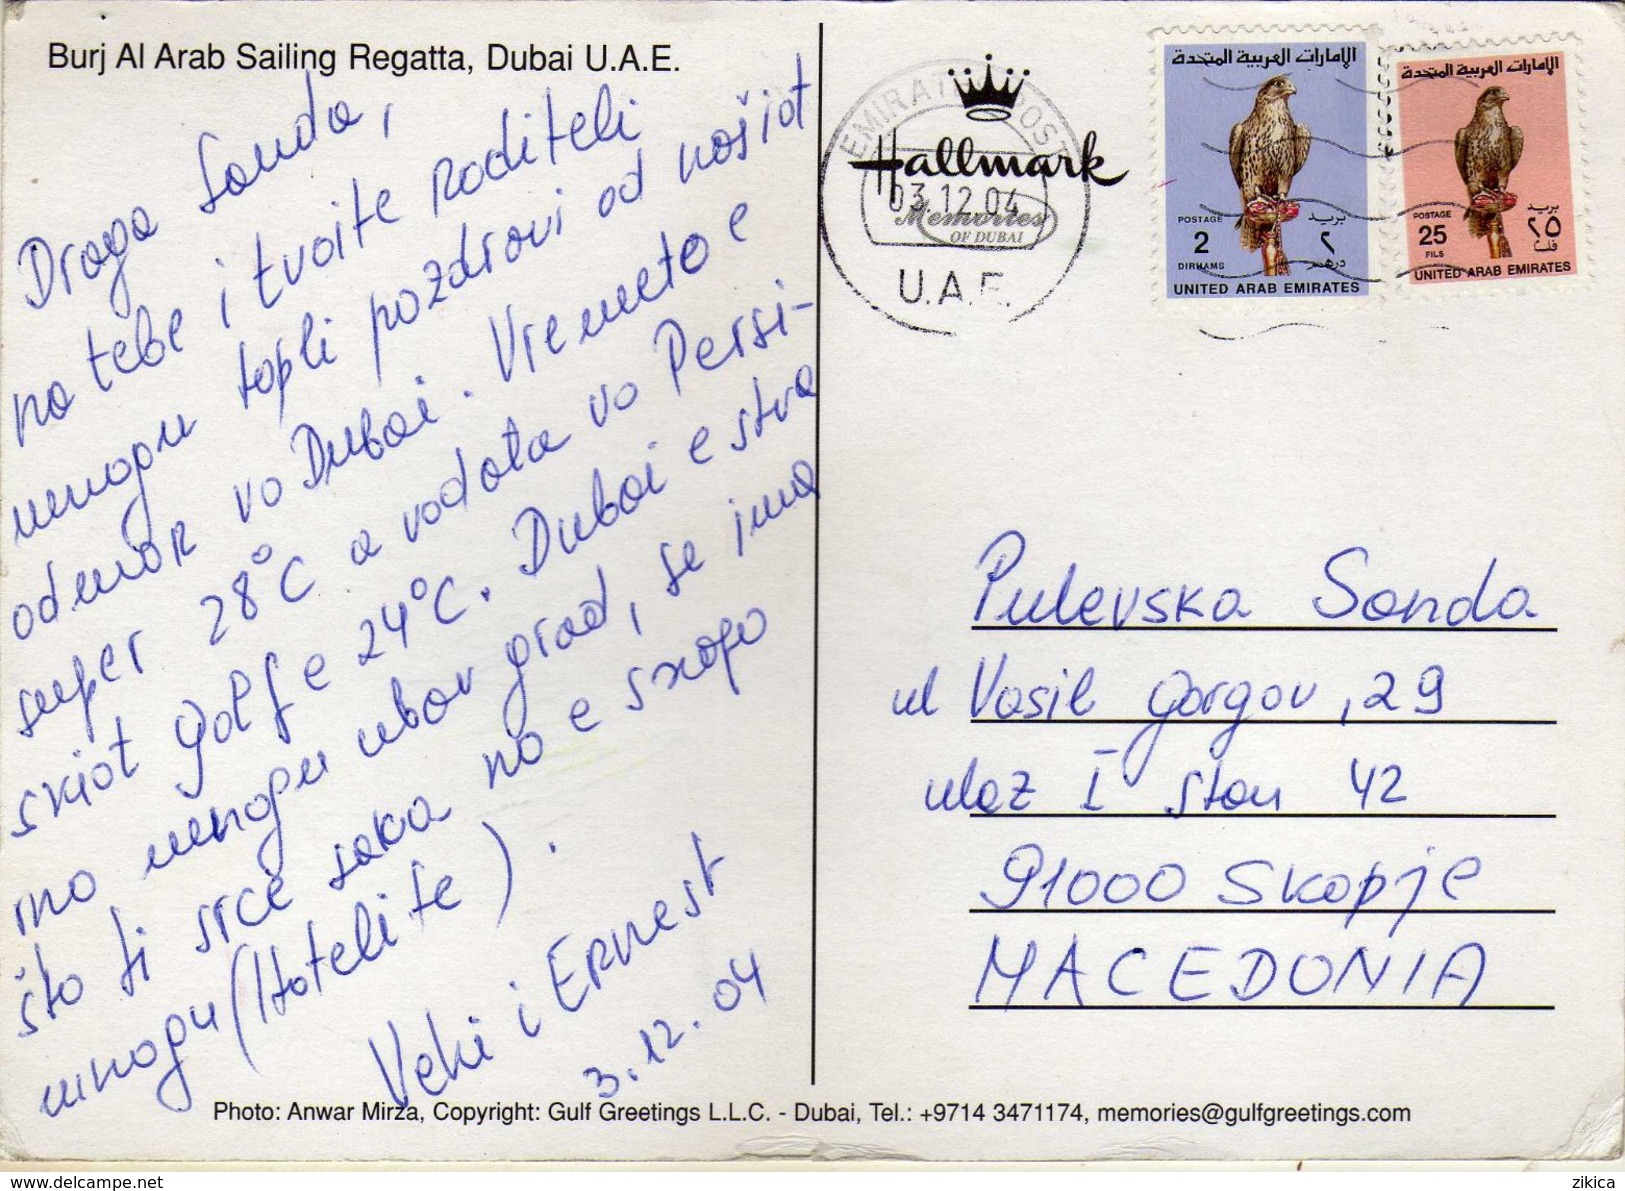 Burj Al Arab Sailing Regatta, Dubai U.A.E.
Draga Sanda,
na tebe i tvoite roditeli
mnogu topli pozdrovi od našiot
odmor vo Dubai. Vremeto e
super 28°C a vodata vo Persi-
skiot golf e 24°C. Dubai e stva
rno mnogu ubav grad, se ima
što ti srce saka no e skapo
mnogu (Hotelite).
Veki i Ernest
3.12.04
Hallmark
Memories
OF DUBAI
EMIRATES POST
03.12.04
U.A.E.
الإمارات العربية المتحدة
POSTAGE
2
DIRHAMS
بريد
٢
درهم
UNITED ARAB EMIRATES
الإمارات العربية المتحدة
POSTAGE
25
FILS
بريد
٢٥
فلسا
UNITED ARAB EMIRATES
Pulevska Sanda
ul Vasil gorgov, 29
ulaz I stan 42
91000 Skopje
MACEDONIA
Photo: Anwar Mirza, Copyright: Gulf Greetings L.L.C. - Dubai, Tel.: +9714 3471174, memories@gulfgreetings.com
www.delcampe.net
zikica